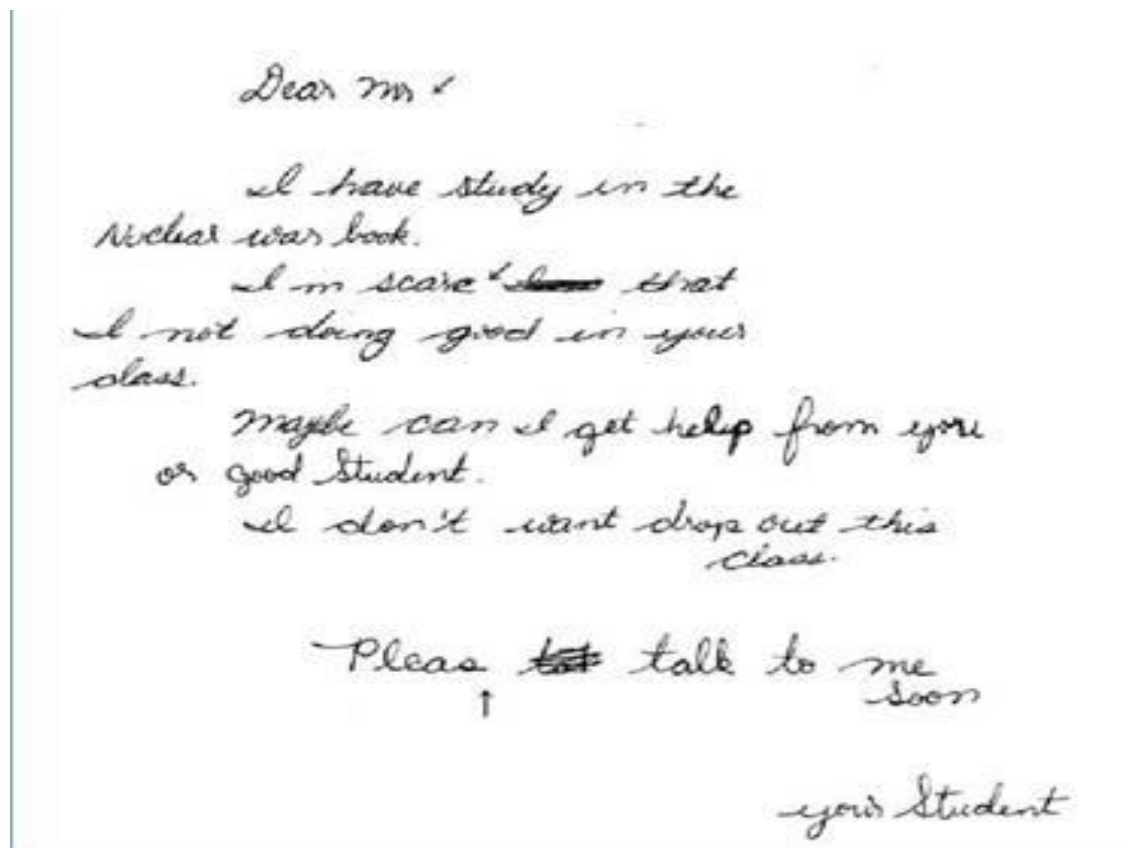 Dear Mr
I have study in the
Nuclear war book.
I m scare that
I not doing good in your
class.
Maybe can I get help from you
or good Student.
I don't want drop out this
class.
Pleas talk to me
soon
your Student